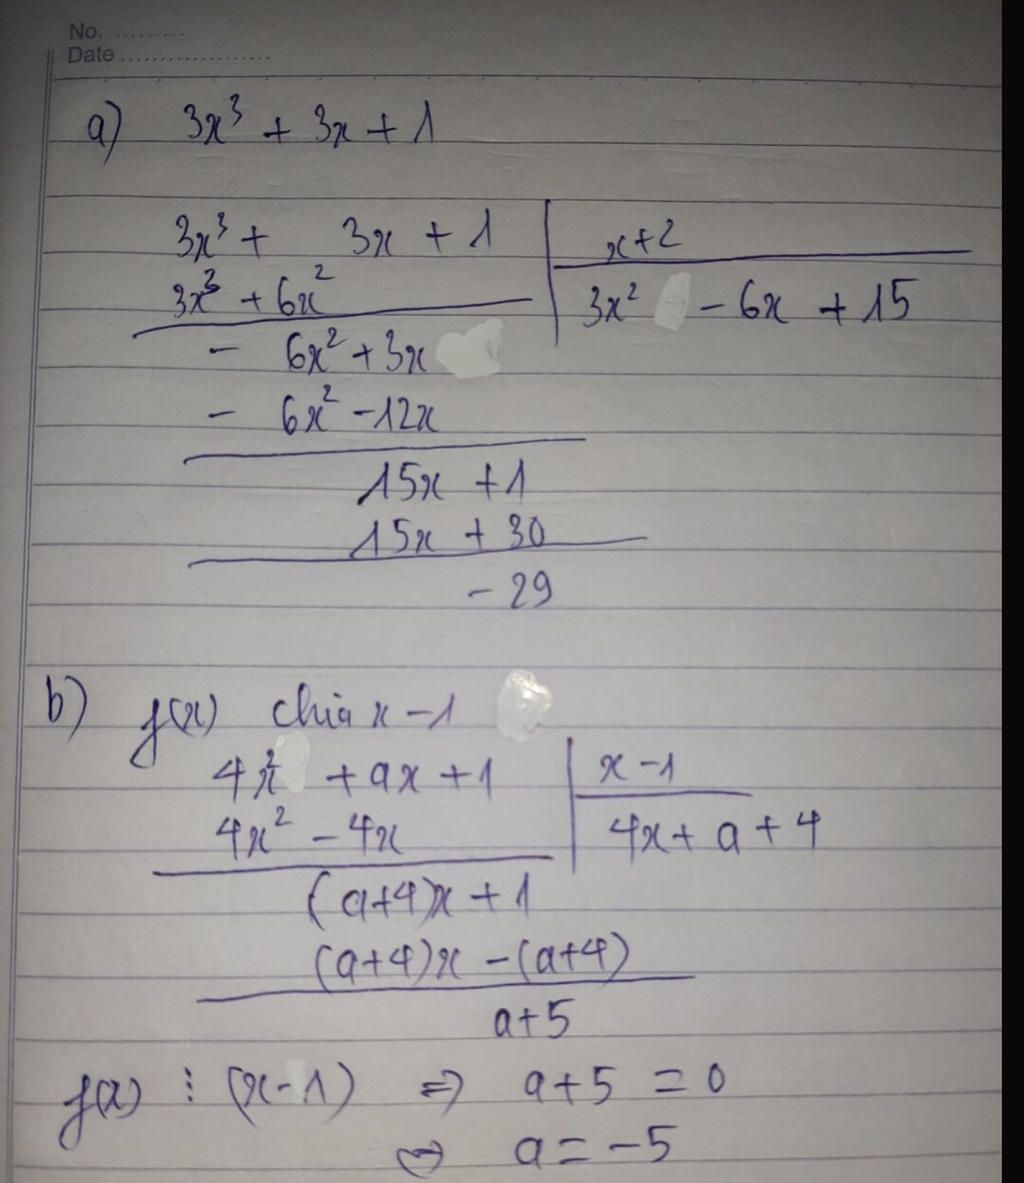 No. .........
Date ...................
a) 3x³ + 3x + 1
3x³ + 3x + 1 | x+2
3x³ + 6x² | 3x² - 6x + 15
- 6x² + 3x
- 6x² - 12x
15x + 1
15x + 30
- 29
b) f(x) chia x - 1
4x² + ax + 1 | x - 1
4x² - 4x | 4x + a + 4
(a+4)x + 1
(a+4)x - (a+4)
a+5
f(x) ⋮ (x-1) ⇒ a+5 = 0
⇔ a = -5